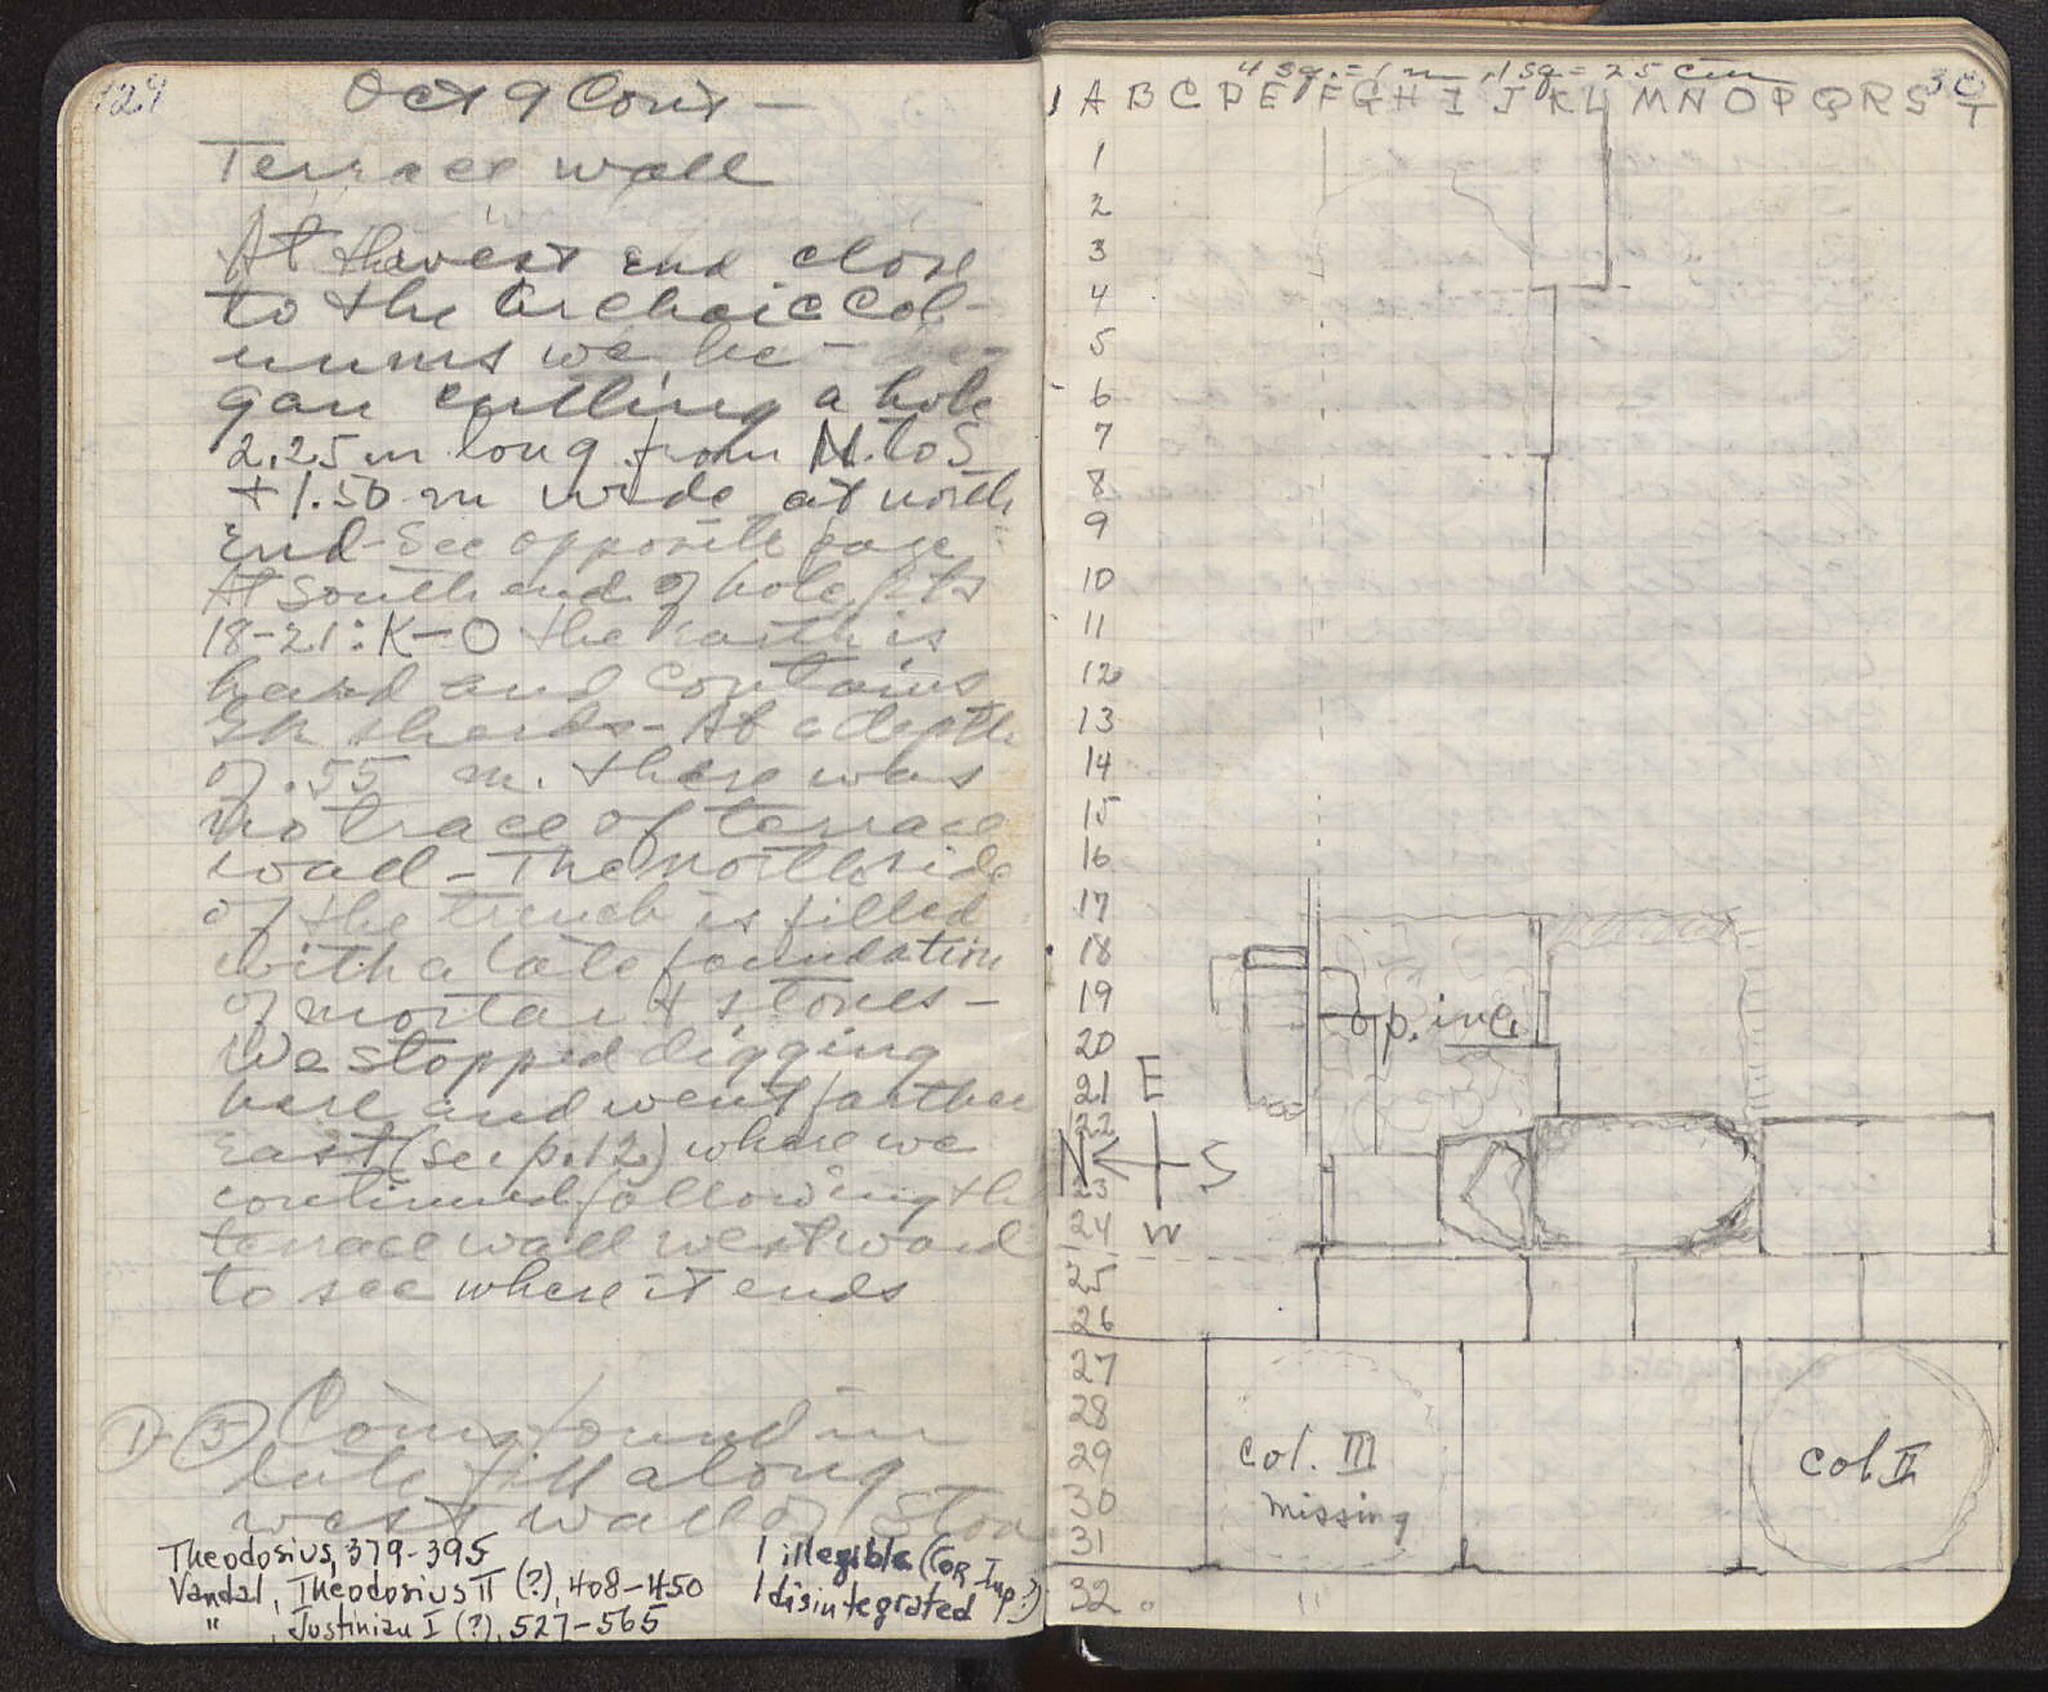 129
Oct 9 Cont —
Terrace wall
At the west end close
to the Archaic Col-
umns we be-
gan cutting a hole
2.25 m long from N. to S
+ 1.50 m wide at north
End - See opposite page
At south end of hole, pts
18-21: K-O the earth is
hard and contains
Gk sherds - At a depth
of .55 m. there was
no trace of terrace
wall - The north side
of the trench is filled
with a late foundation
of mortar & stones -
We stopped digging
here and went farther
East (see p. 12) where we
continued following the
terrace wall westward
to see where it ends
1-5 Coins found in
late fill along
west wall of Stoa
Theodosius, 379-395
Vandal, Theodosius II (?), 408-450
" , Justinian I (?), 527-565
1 illegible (or Imp?)
1 disintegrated
4 sq. = 1 m, 1 sq = 25 cm
30
A B C D E F G H I J K L M N O P Q R S T
1
2
3
4
5
6
7
8
9
10
11
12
13
14
15
16
17
18
19
op. inc.
20
21
E
22
N S
23
24
W
25
26
27
28
29
Col. III
Col. II
30
missing
31
32